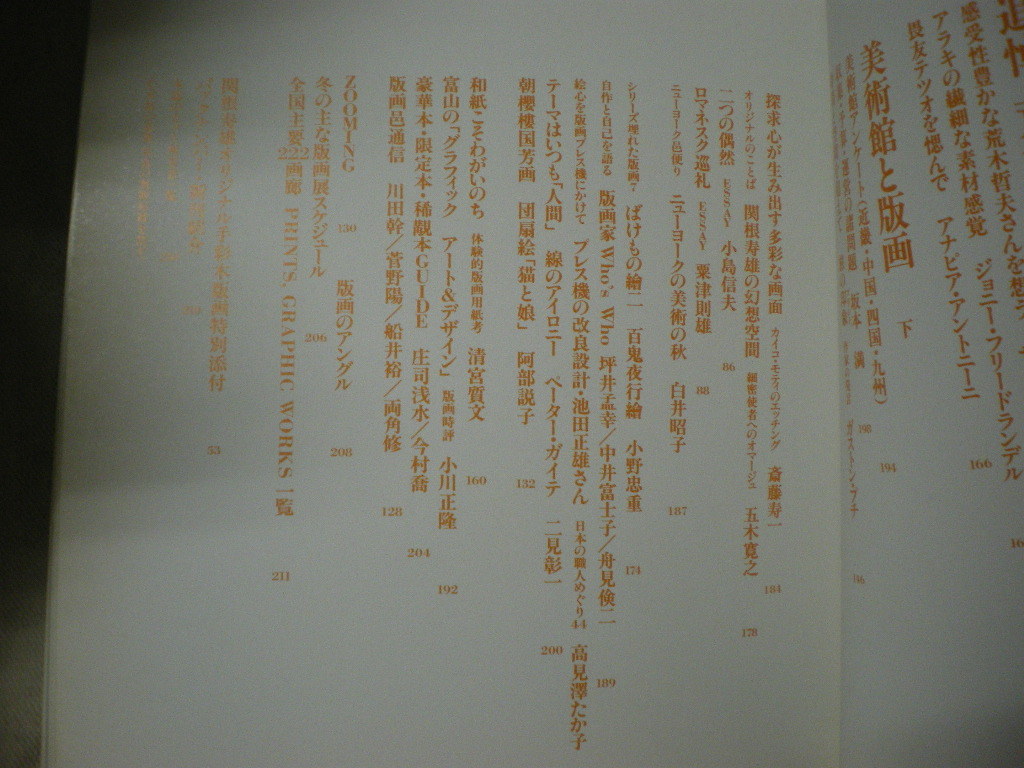 追悼
感受性豊かな荒木哲夫さんを想う ジョニー・フリードランデル 166
アラキの繊細な素材感覚 アナビア・アントニーニ
畏友テツオを偲んで
美術館と版画 下 194
美術館アンケート(近畿・中国・四国・九州) 198
探求心が生み出す多彩な画面 カイコ・モティのエッチング 斎藤寿一 184
オリジナルのことば 関根寿雄の幻想空間 細密使者へのオマージュ 五木寛之 178
二つの偶然 ESSAY 小島信夫 86
ロマネスク巡礼 ESSAY 粟津則雄 88
ニューヨーク邑便り ニューヨークの美術の秋 白井昭子 187
シリーズ埋れた版画・7 ばけもの繪二 百鬼夜行繪 小野忠重 174
自作と自己を語る 版画家Who's Who 坪井孟幸/中井富士子/舟見倹二 189
絵心を版画プレス機にかけて プレス機の改良設計・池田正雄さん 日本の職人めぐり44 高見澤たか子
テーマはいつも「人間」 線のアイロニー ペーター・ガイテ 二見彰一 200
朝櫻櫻国芳画 団扇絵「猫と娘」 阿部説子 132
和紙こそわがいのち 体験的版画用紙考 清宮質文 160
富山の「グラフィック アート&デザイン」 版画時評 小川正隆 192
豪華本・限定本・稀覯本GUIDE 庄司浅水/今村喬 204
版画邑通信 川田幹/菅野陽/船井裕/両角修 128
ZOOMING 130 版画のアングル 208
冬の主な版画展スケジュール 206
全国主要222画廊 PRINTS, GRAPHIC WORKS 一覧 211
関根寿雄オリジナル手彩木版画特別添付 53